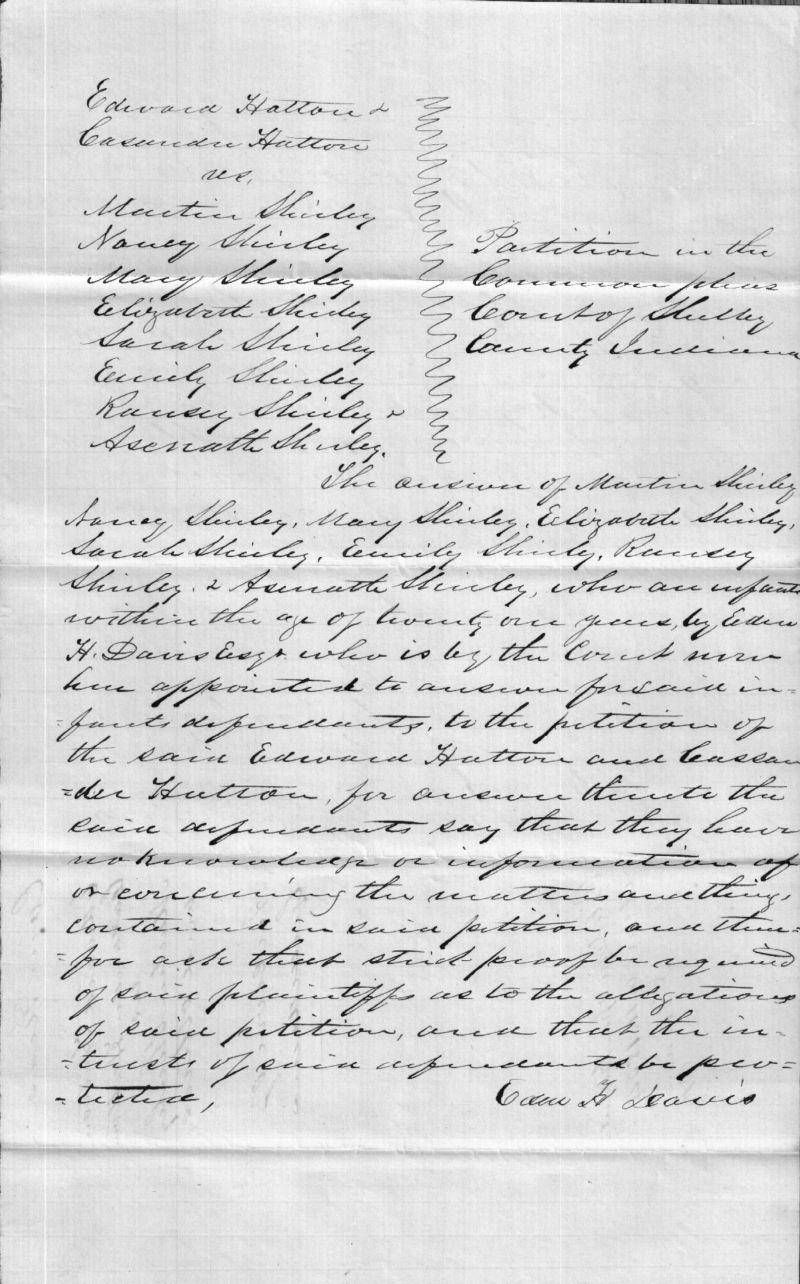 Edward Hatton &
Casander Hatton
vs.
Martin Shirley
Nancy Shirley
Mary Shirley
Elizabeth Shirley
Sarah Shirley
Emily Shirley
Ransey Shirley &
Asenath Shirley.
Partition in the
Common pleas
Court of Shelby
County Indiana
The answer of Martin Shirley
Nancy Shirley, Mary Shirley, Elizabeth Shirley,
Sarah Shirley, Emily Shirley, Ransey
Shirley. & Asenath Shirley, who are infants
within the age of twenty one years, by Eden
H. Davis Esqr. who is by the Court now
here appointed to answer for said in-
-fants defendants, to the petition of
the said Edward Hatton and Cassan
=der Hatton, for answer thereto the
said defendants say that they have
no knowledge or information of
or concerning the matters and things
contained in said petition, and there=
-for ask that strict proof be required
of said plaintiffs as to the allegations
of said petition, and that the in-
-terests of said defendants be pro-
-tected,
Eden H Davis